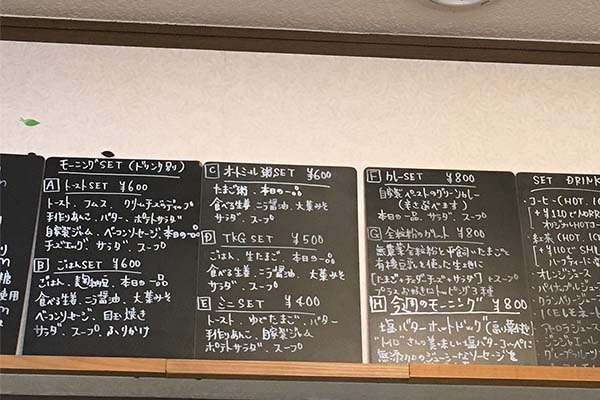 モーニングSET (ドリンク別)
A トーストSET ¥600
トースト、フムス、クリームチーズディップ
手作りあんこ、バター、ポテトサラダ
自家製ジャム、ベーコンソーセージ、本日の一品
チーズエッグ、サラダ、スープ
B ごはんSET ¥600
ごはん、納豆、本日の一品
食べる生姜、ニラ醤油、大葉みそ
ベーコンソーセージ、目玉焼き
サラダ、スープ、ふりかけ
C オートミール粥SET ¥600
たまご粥、本日の一品
食べる生姜、ニラ醤油、大葉みそ
サラダ、スープ
D TKG SET ¥500
ごはん、生たまご、本日の一品
食べる生姜、ニラ醤油、大葉みそ
サラダ、スープ
E ミニSET ¥400
トースト、ゆでたまご、バター
手作りあんこ、自家製ジャム
ポテトサラダ、スープ
F カレーSET ¥800
自家製ペーストのグリーンカレー
本日の一品、サラダ、スープ
G 全粒粉ガレット ¥800
無農薬全粒粉と平飼いたまごと
有機豆乳を使った生地に
[たまご+チェダーチーズ+サラダ]
プラスお好きなトッピング3種
H 今週のモーニング ¥800
塩バターホットドッグ
さんの美味しい塩バターコッペに
無添加のジューシーなソーセージを
SET DRINK
コーヒー(HOT, IC
[+¥110で
紅茶(HOT, IC
[+¥110で
オレンジジュース
パイナップルジュース
クランベリー
アセロラジュース
ジンジャーエール
グレープフルーツ